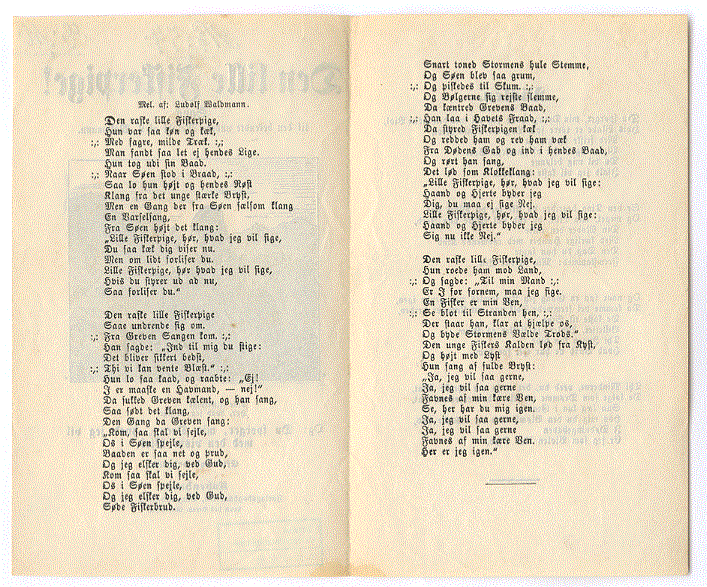 Mel. af: Ludolf Waldmann.
Den raske lille Fiskerpige,
Hun var saa køn og kæk,
:,: Med fagre, milde Træk. :,:
Man fandt saa let ej hendes Lige.
Hun tog ud i sin Baad.
:,: Naar Søen stod i Braad, :,:
Saa lo hun højt og hendes Røst
Klang fra det unge stærke Bryst,
Men en Gang der fra Søen fælsom klang
En Varselsang,
Fra Søen højt det klang:
„Lille Fiskerpige, hør, hvad jeg vil sige,
Du saa kæk dig viser nu.
Men om lidt forliser du.
Lille Fiskerpige, hør hvad jeg vil sige,
Hvis du styrer ud ad nu,
Saa forliser du.“
Den raske lille Fiskerpige
Saae undrende sig om.
:,: Fra Greven Sangen kom. :,:
Han sagde: „Ind til mig du stige:
Det bliver sikkert bedst,
:,: Thi vi kan vente Blæst.“ :,:
Hun lo saa kaad, og raabte: „Ej!
I er maaske en Havmand, — nej!“
Da sukked Greven kælent, og han sang,
Saa sødt det klang,
Den Gang da Greven sang:
„Kom, saa skal vi sejle,
Os i Søen spejle,
Baaden er saa net og prud,
Og jeg elsker dig, ved Gud,
Kom saa skal vi sejle,
Os i Søen spejle,
Og jeg elsker dig, ved Gud,
Søde Fiskerbrud.
Snart toned Stormens hule Stemme,
Og Søen blev saa grum,
:,: Og piskedes til Skum. :,:
Og Bølgerne sig rejste slemme,
Da kæntred Grevens Baad,
:,: Han laa i Havets Fraad, :,:
Da styred Fiskerpigen kæk
Og redded ham og rev ham væk
Fra Dødens Gab og ind i hendes Baad,
Og rørt han sang,
Det lød som Klokkeklang:
„Lille Fiskerpige, hør, hvad jeg vil sige:
Haand og Hjerte byder jeg
Dig, du maa ej sige Nej.
Lille Fiskerpige, hør, hvad jeg vil sige:
Haand og Hjerte byder jeg
Sig nu ikke Nej.“
Den raske lille Fiskerpige,
Hun roede ham mod Land,
:,: Og sagde: „Til min Mand :,:
Er I for fornem, maa jeg sige.
En Fisker er min Ven,
:,: Se blot til Stranden hen, :,:
Der staar han, klar at hjælpe os,
Og byde Stormens Vælde Trods.“
Den unge Fiskers Kalden lød fra Kyst,
Og højt med Lyst
Hun sang af fulde Bryst:
„Ja, jeg vil saa gerne,
Ja, jeg vil saa gerne,
Favnes af min kære Ven,
Se, her har du mig igen.
Ja, jeg vil saa gerne,
Ja, jeg vil saa gerne
Favnes af min kære Ven.
Her er jeg igen.“